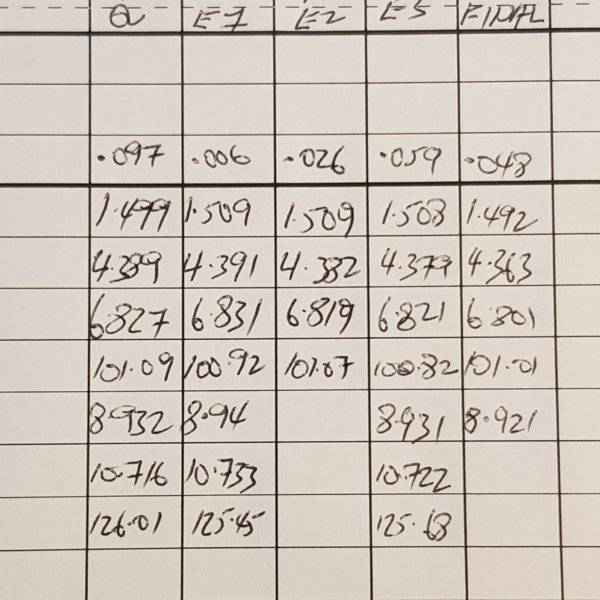 Q E1 E2 E3 FINAL
.097 .006 .026 .059 .048
1.499 1.509 1.509 1.508 1.492
4.389 4.391 4.382 4.379 4.363
6.827 6.831 6.819 6.821 6.801
101.09 100.92 101.07 100.82 101.01
8.932 8.94 8.931 8.921
10.716 10.733 10.722
126.01 125.45 125.68